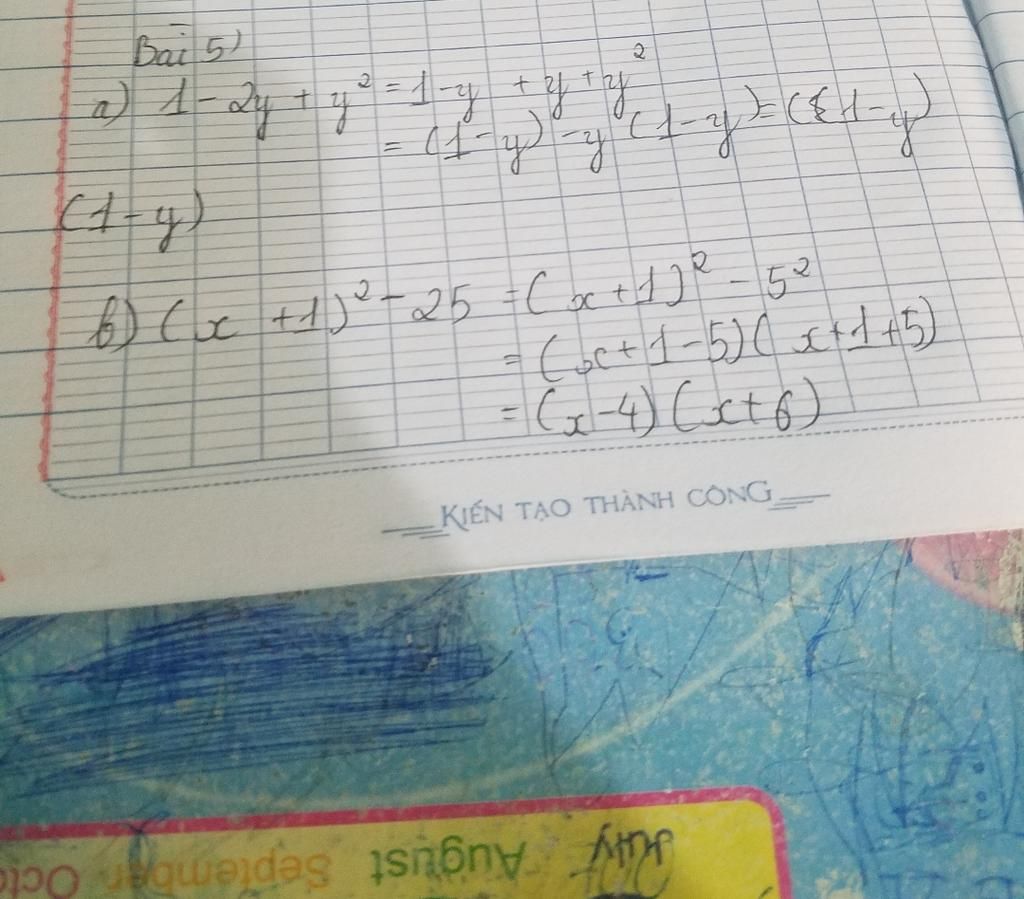 Bài 5)
a) 1 - 2y + y² = 1 - y + y + y²
= (1 - y) - y (1 - y) = (1 - y)
(1 - y)
b) (x + 1)² - 25 = (x + 1)² - 5²
= (x + 1 - 5)(x + 1 + 5)
= (x - 4)(x + 6)
KIẾN TẠO THÀNH CÔNG
July August September Octo